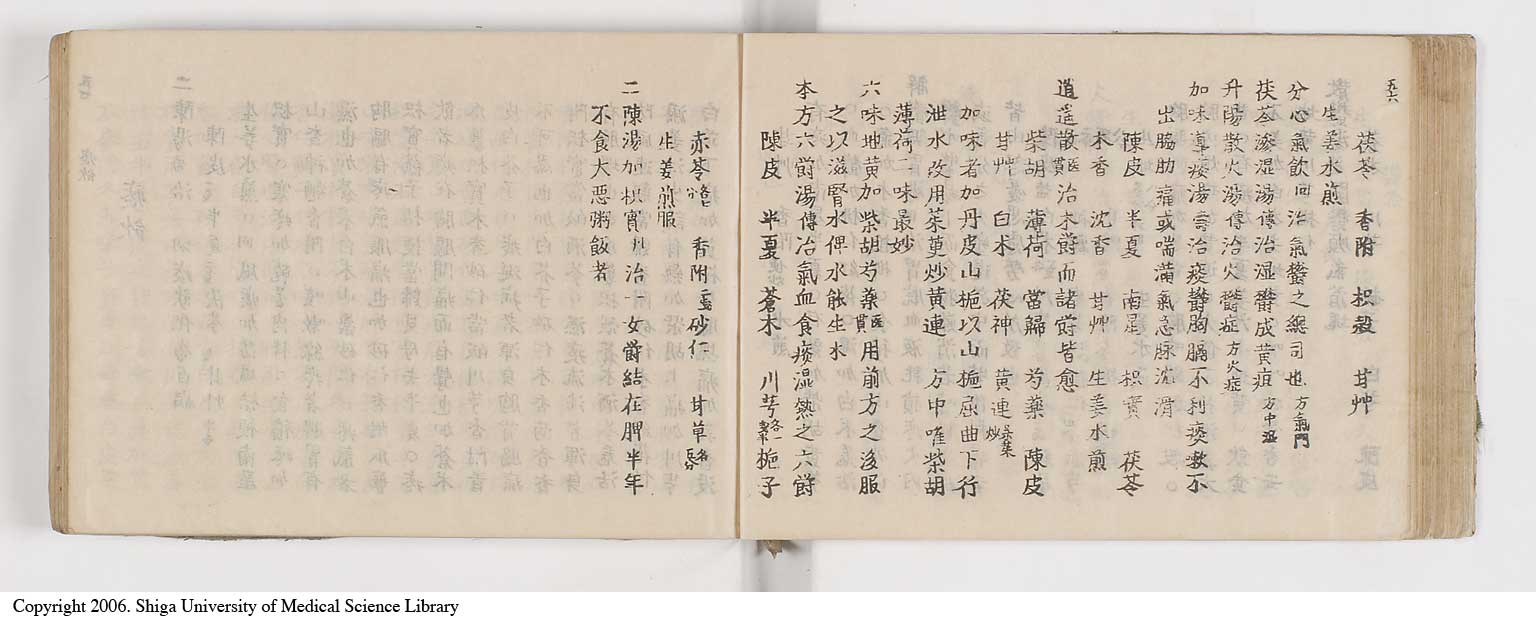 五六
茯苓 香附 枳殻 甘艸
生姜水煎
分心氣飲回治氣欝之總司也 方氣門
茯苓滲湿湯傳治湿欝成黄疸 方中湿
升陽散火湯傳治火欝症 方火症
加味導痰湯壽治痰欝胸膈不利痰嗽不
出脇肋痛或喘滿氣急脉沈滑
陳皮 半夏 南星 枳實 茯苓
木香 沈香 甘艸 生姜水煎
逍遥散医貫治木欝而諸欝皆愈
柴胡 薄荷 當歸 芍藥 陳皮
甘艸 白术 茯神 黄連
加味者加丹皮山梔以山梔屈曲下行
泄水改用茱萸炒黄連 方中唯柴胡
薄荷二味最妙
六味地黄加柴胡芍藥医貫用前方之後服
之以滋腎水俾水能生木
本方六欝湯傳治氣血食痰湿熱之六欝
陳皮 半夏 蒼术 川芎各一 梔子
赤苓 香附 砂仁 甘草
生姜煎服
二陳湯加枳實 治一女欝結在脾半年
不食大悪粥飯者